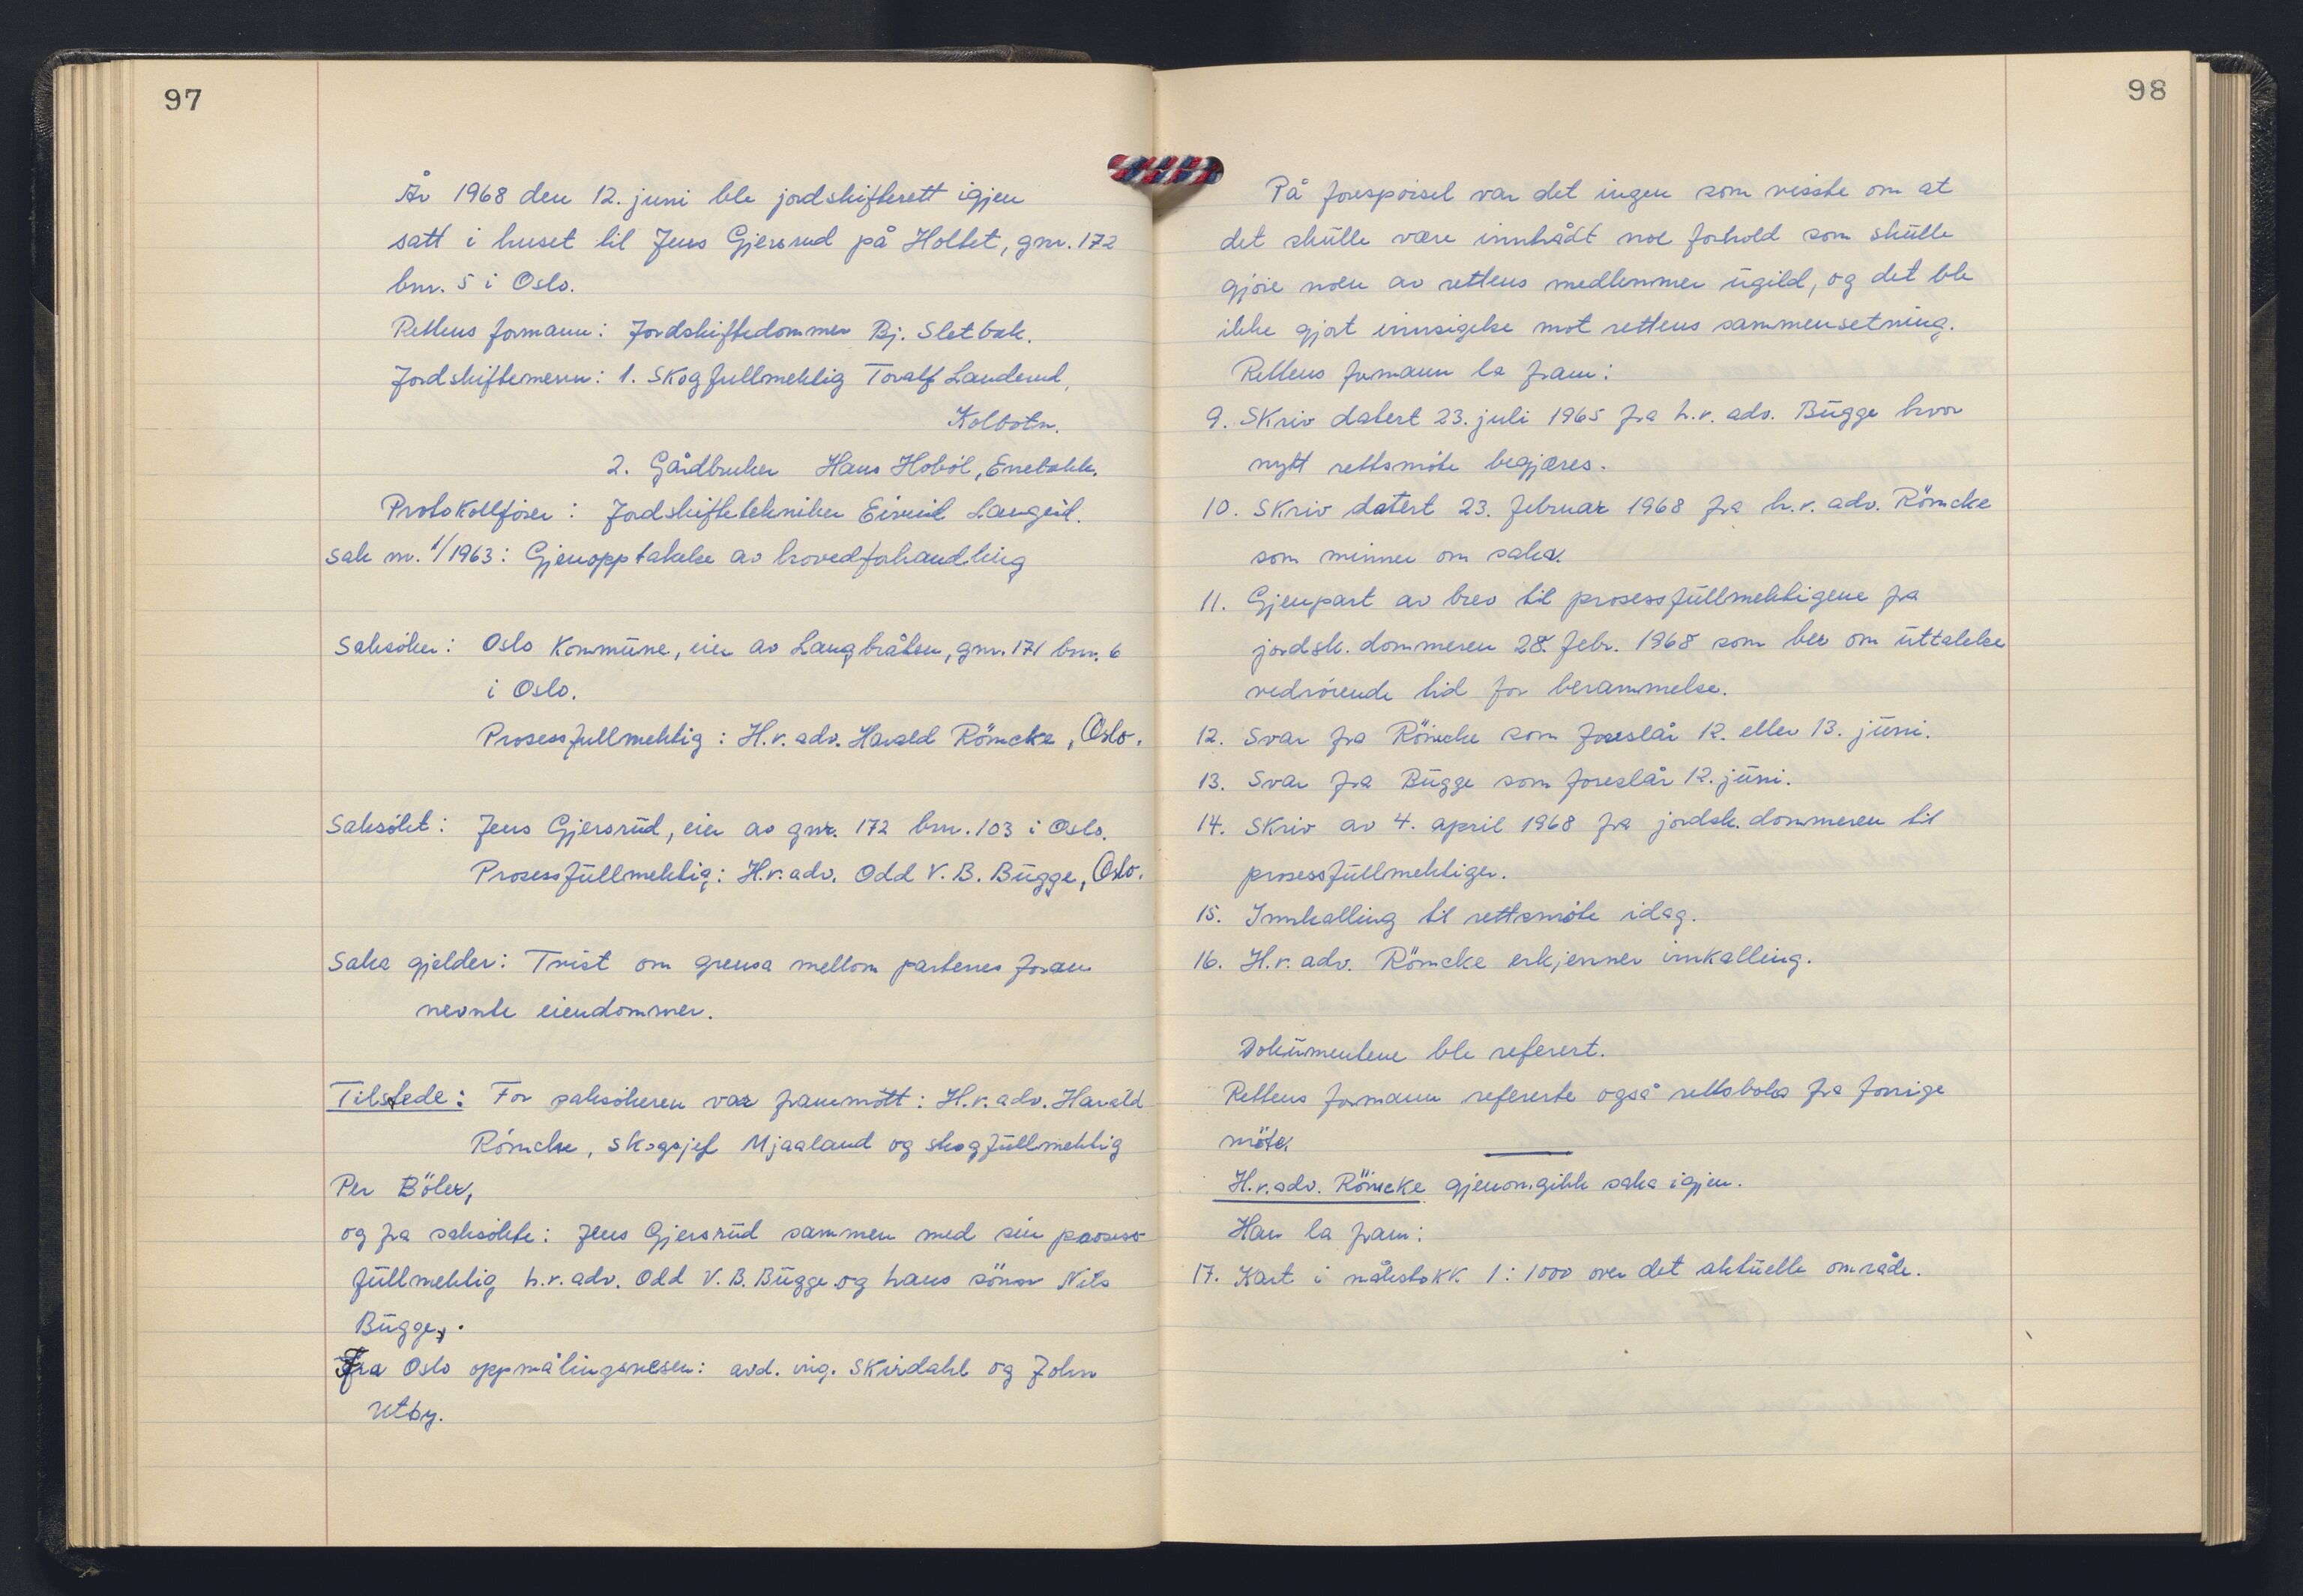 97
År 1968 den 12. juni ble jordskifterett igjen
satt i huset til Jens Gjersrud på Holtet, gnr. 172
bnr. 5 i Oslo.
Rettens formann: Jordskiftedommer Bj. Sletbak.
Jordskiftemenn: 1. Skogfullmektig Toralf Landerud,
Kolbotn.
2. Gårdbruker Hans Hobøl, Enebakk.
Protokollfører: Jordskiftetekniker Eivind Langeid.
Sak nr. 1/1963: Gjenopptakelse av hovedforhandling
Saksöker: Oslo Kommune, eier av Langbråten, gnr. 171 bnr. 6
i Oslo.
Prosessfullmektig: H.r. adv. Harald Römcke, Oslo.
Saksökt: Jens Gjersrud, eier av gnr. 172 bnr. 103 i Oslo.
Prosessfullmektig: H.r. adv. Odd V. B. Bugge, Oslo.
Saka gjelder: Tvist om grensa mellom partenes foran
nevnte eiendommer.
Tilstede: For saksökeren var frammött: H.r. adv. Harald
Römcke, skogsjef Mjaaland og skogfullmektig
Per Böler,
og fra saksökte: Jens Gjersrud sammen med sin prosess-
fullmektig h.r. adv. Odd V. B. Bugge og hans sönn Nils
Bugge.
Fra Oslo oppmålingsvesen: avd. ing. Skirdahl og John
Utby.
98
På forespörsel var det ingen som visste om at
det skulle være inntrådt noe forhold som skulle
gjöre noen av rettens medlemmer ugild, og det ble
ikke gjort innsigelse mot rettens sammensetning.
Rettens formann la fram:
9. Skriv datert 23. juli 1965 fra h.r. adv. Bugge hvor
nytt rettsmöte begjæres.
10. Skriv datert 23. februar 1968 fra h.r. adv. Römcke
som minner om saka.
11. Gjenpart av brev til prosessfullmektigene fra
jordsk. dommeren 28. febr. 1968 som ber om uttalelse
vedrörende tid for berammelse.
12. Svar fra Römcke som foreslår 12. eller 13. juni.
13. Svar fra Bugge som foreslår 12. juni.
14. Skriv av 4. april 1968 fra jordsk. dommeren til
prosessfullmektiger.
15. Innkalling til rettsmöte idag.
16. H.r. adv. Römcke erkjenner innkalling.
Dokumentene ble referert.
Rettens formann refererte også rettsboka fra forrige
möte.
H.r. adv. Römcke gjennomgikk saka igjen.
Han la fram:
17. Kart i målestokk 1:1000 over det aktuelle område.